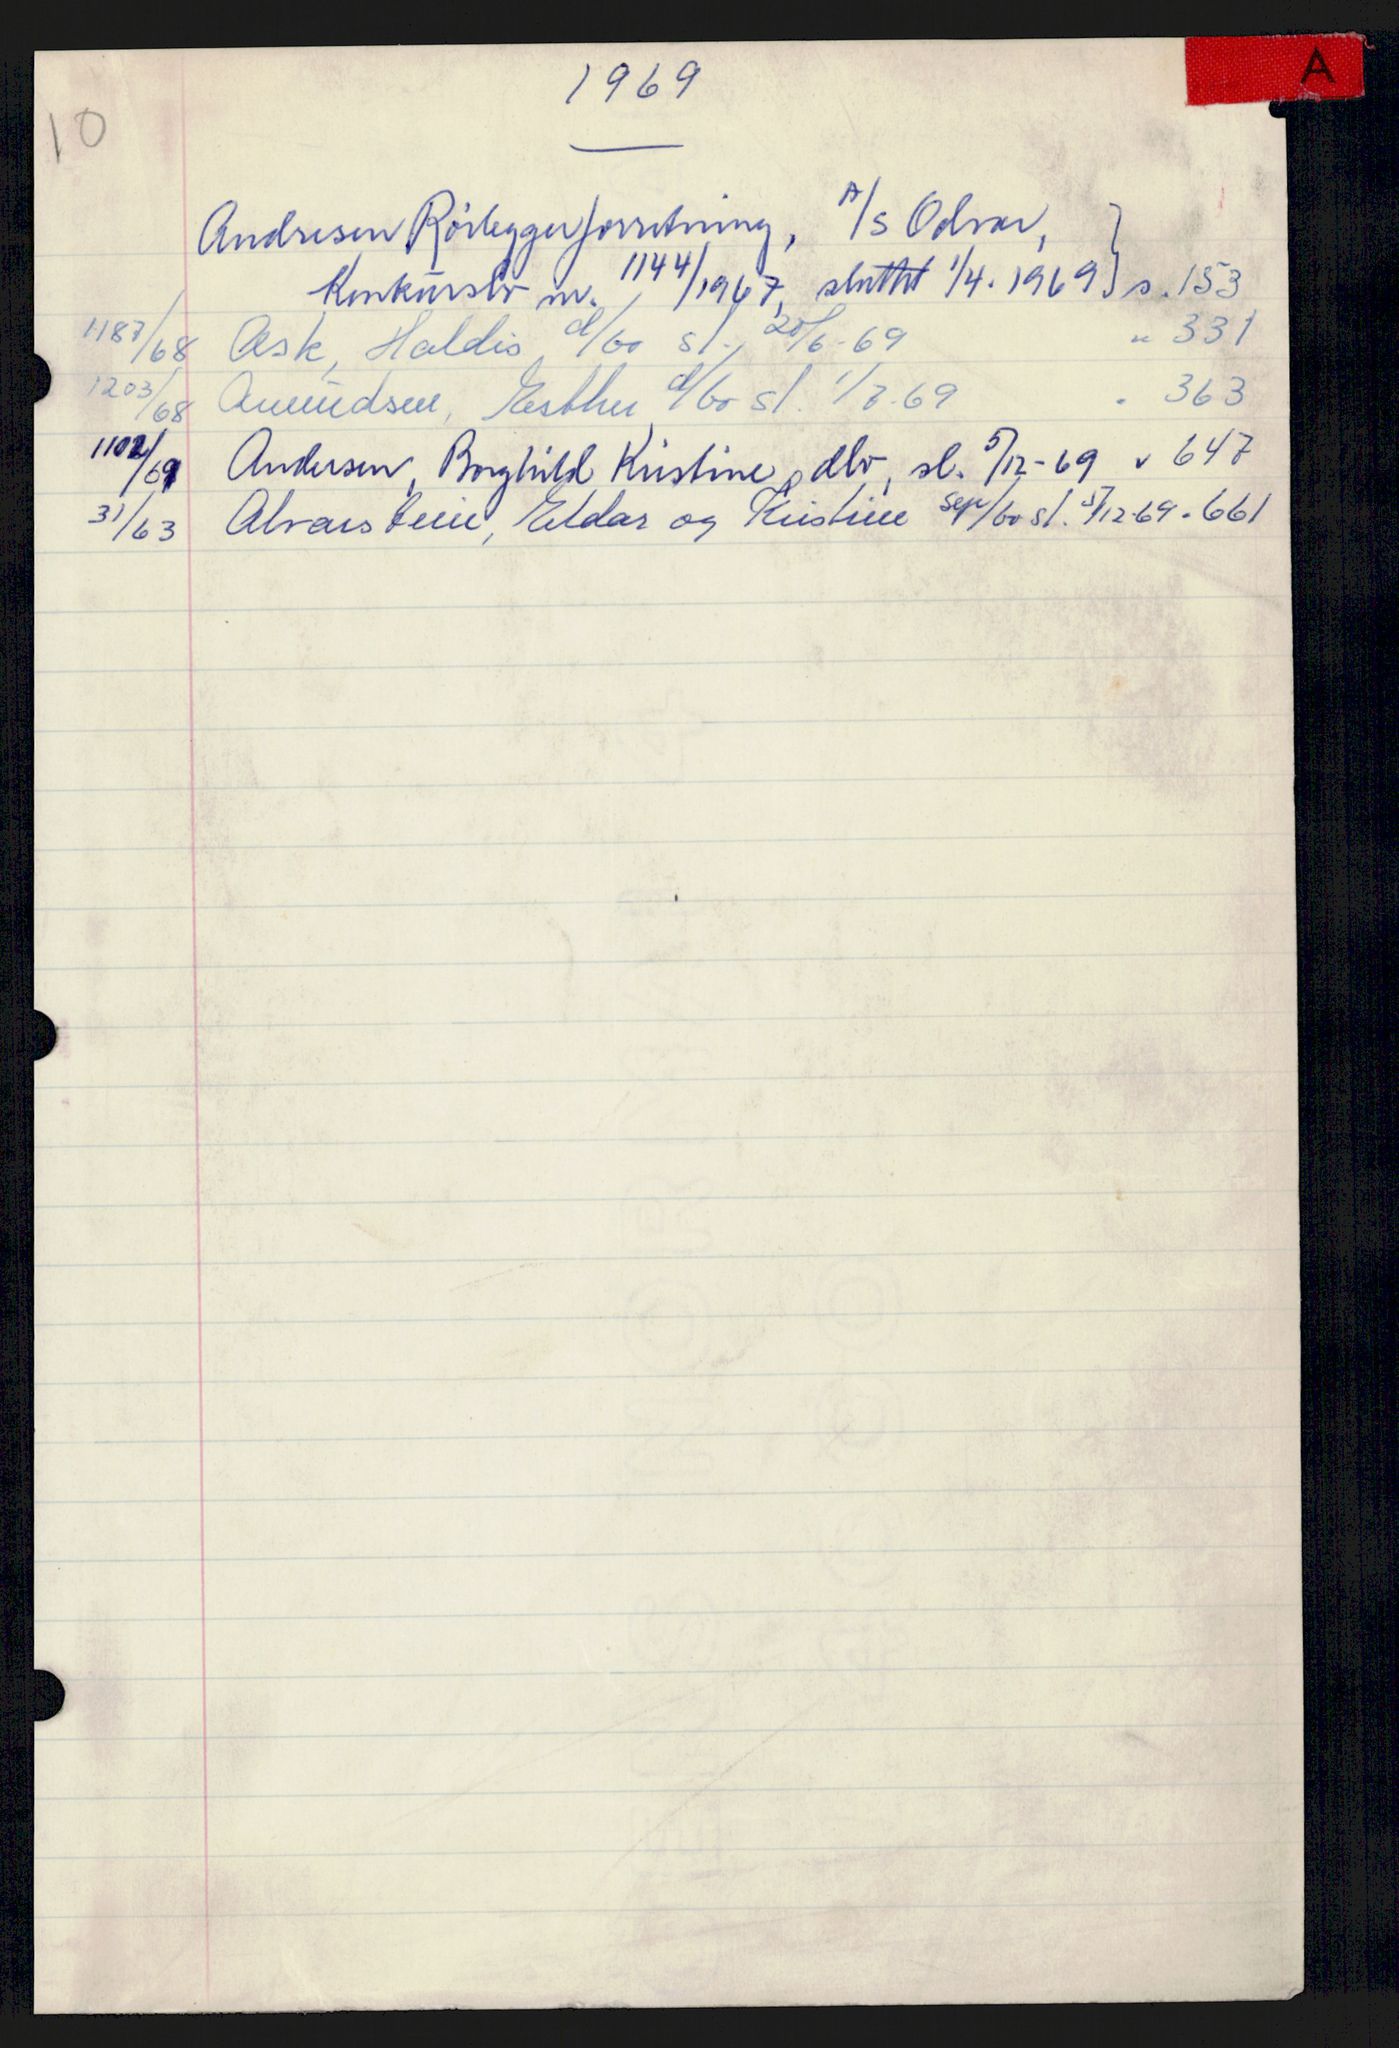 A
1969
10
Andresen Rörleggerforretning, A/S Odvar,
Konkursbo nr. 1144/1967, sluttet 1/4. 1969} s. 153
1187/68 Ask, Haldis, d/bo sl., 20/6-69 " 331
1203/68 Amundsen, Esther d/bo sl. 1/7-69 " 363
1102/69 Andersen, Borghild Kristine, dbo, sl. 5/12-69 " 647
31/63 Alvarstein, Eldar og Kristine sep/bo sl. 5/12-69 " 661